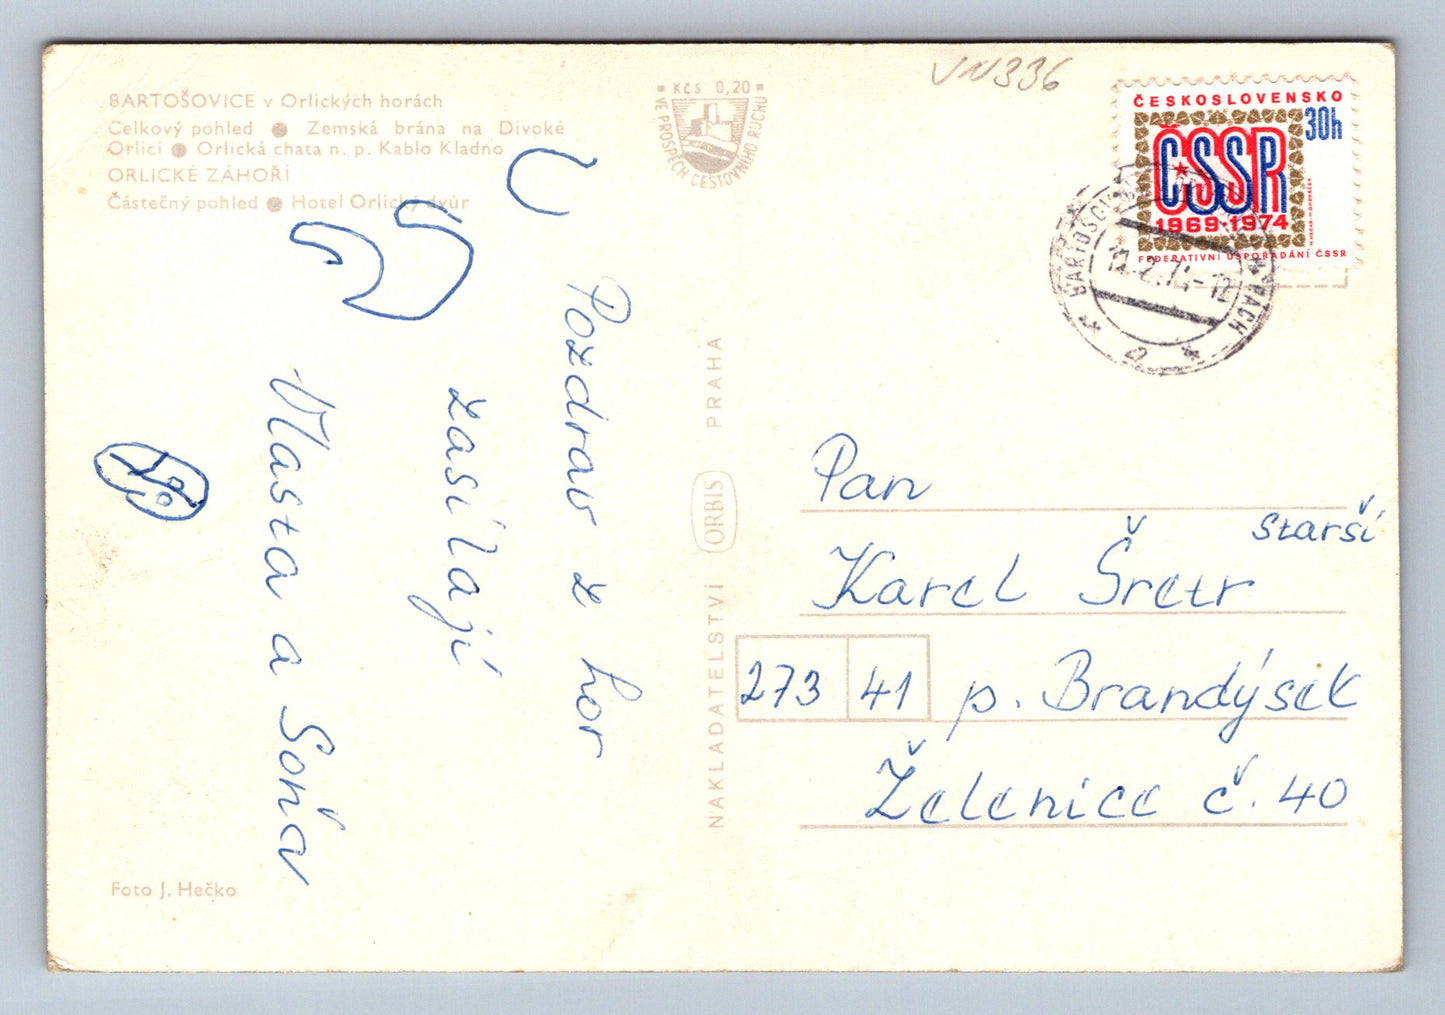 BARTOŠOVICE v Orlických horách
Celkový pohled ● Zemská brána na Divoké
Orlici ● Orlická chata n. p. Kablo Kladno
ORLICKÉ ZÁHOŘÍ
Částečný pohled ● Hotel Orlický dvůr
Kčs 0,20
VE PROSPĚCH CESTOVNÍHO RUCHU
VN336
ČESKOSLOVENSKO
30h
ČSSR
1969-1974
FEDERATIVNÍ USPOŘÁDÁNÍ ČSSR
BARTOŠOV
Pozdrav z hor
zasílají
Vlasta a Soňa
NAKLADATELSTVÍ ORBIS PRAHA
Pan
starší
Karel Šretr
273 41 p. Brandýsek
Želenice č. 40
Foto J. Hečko